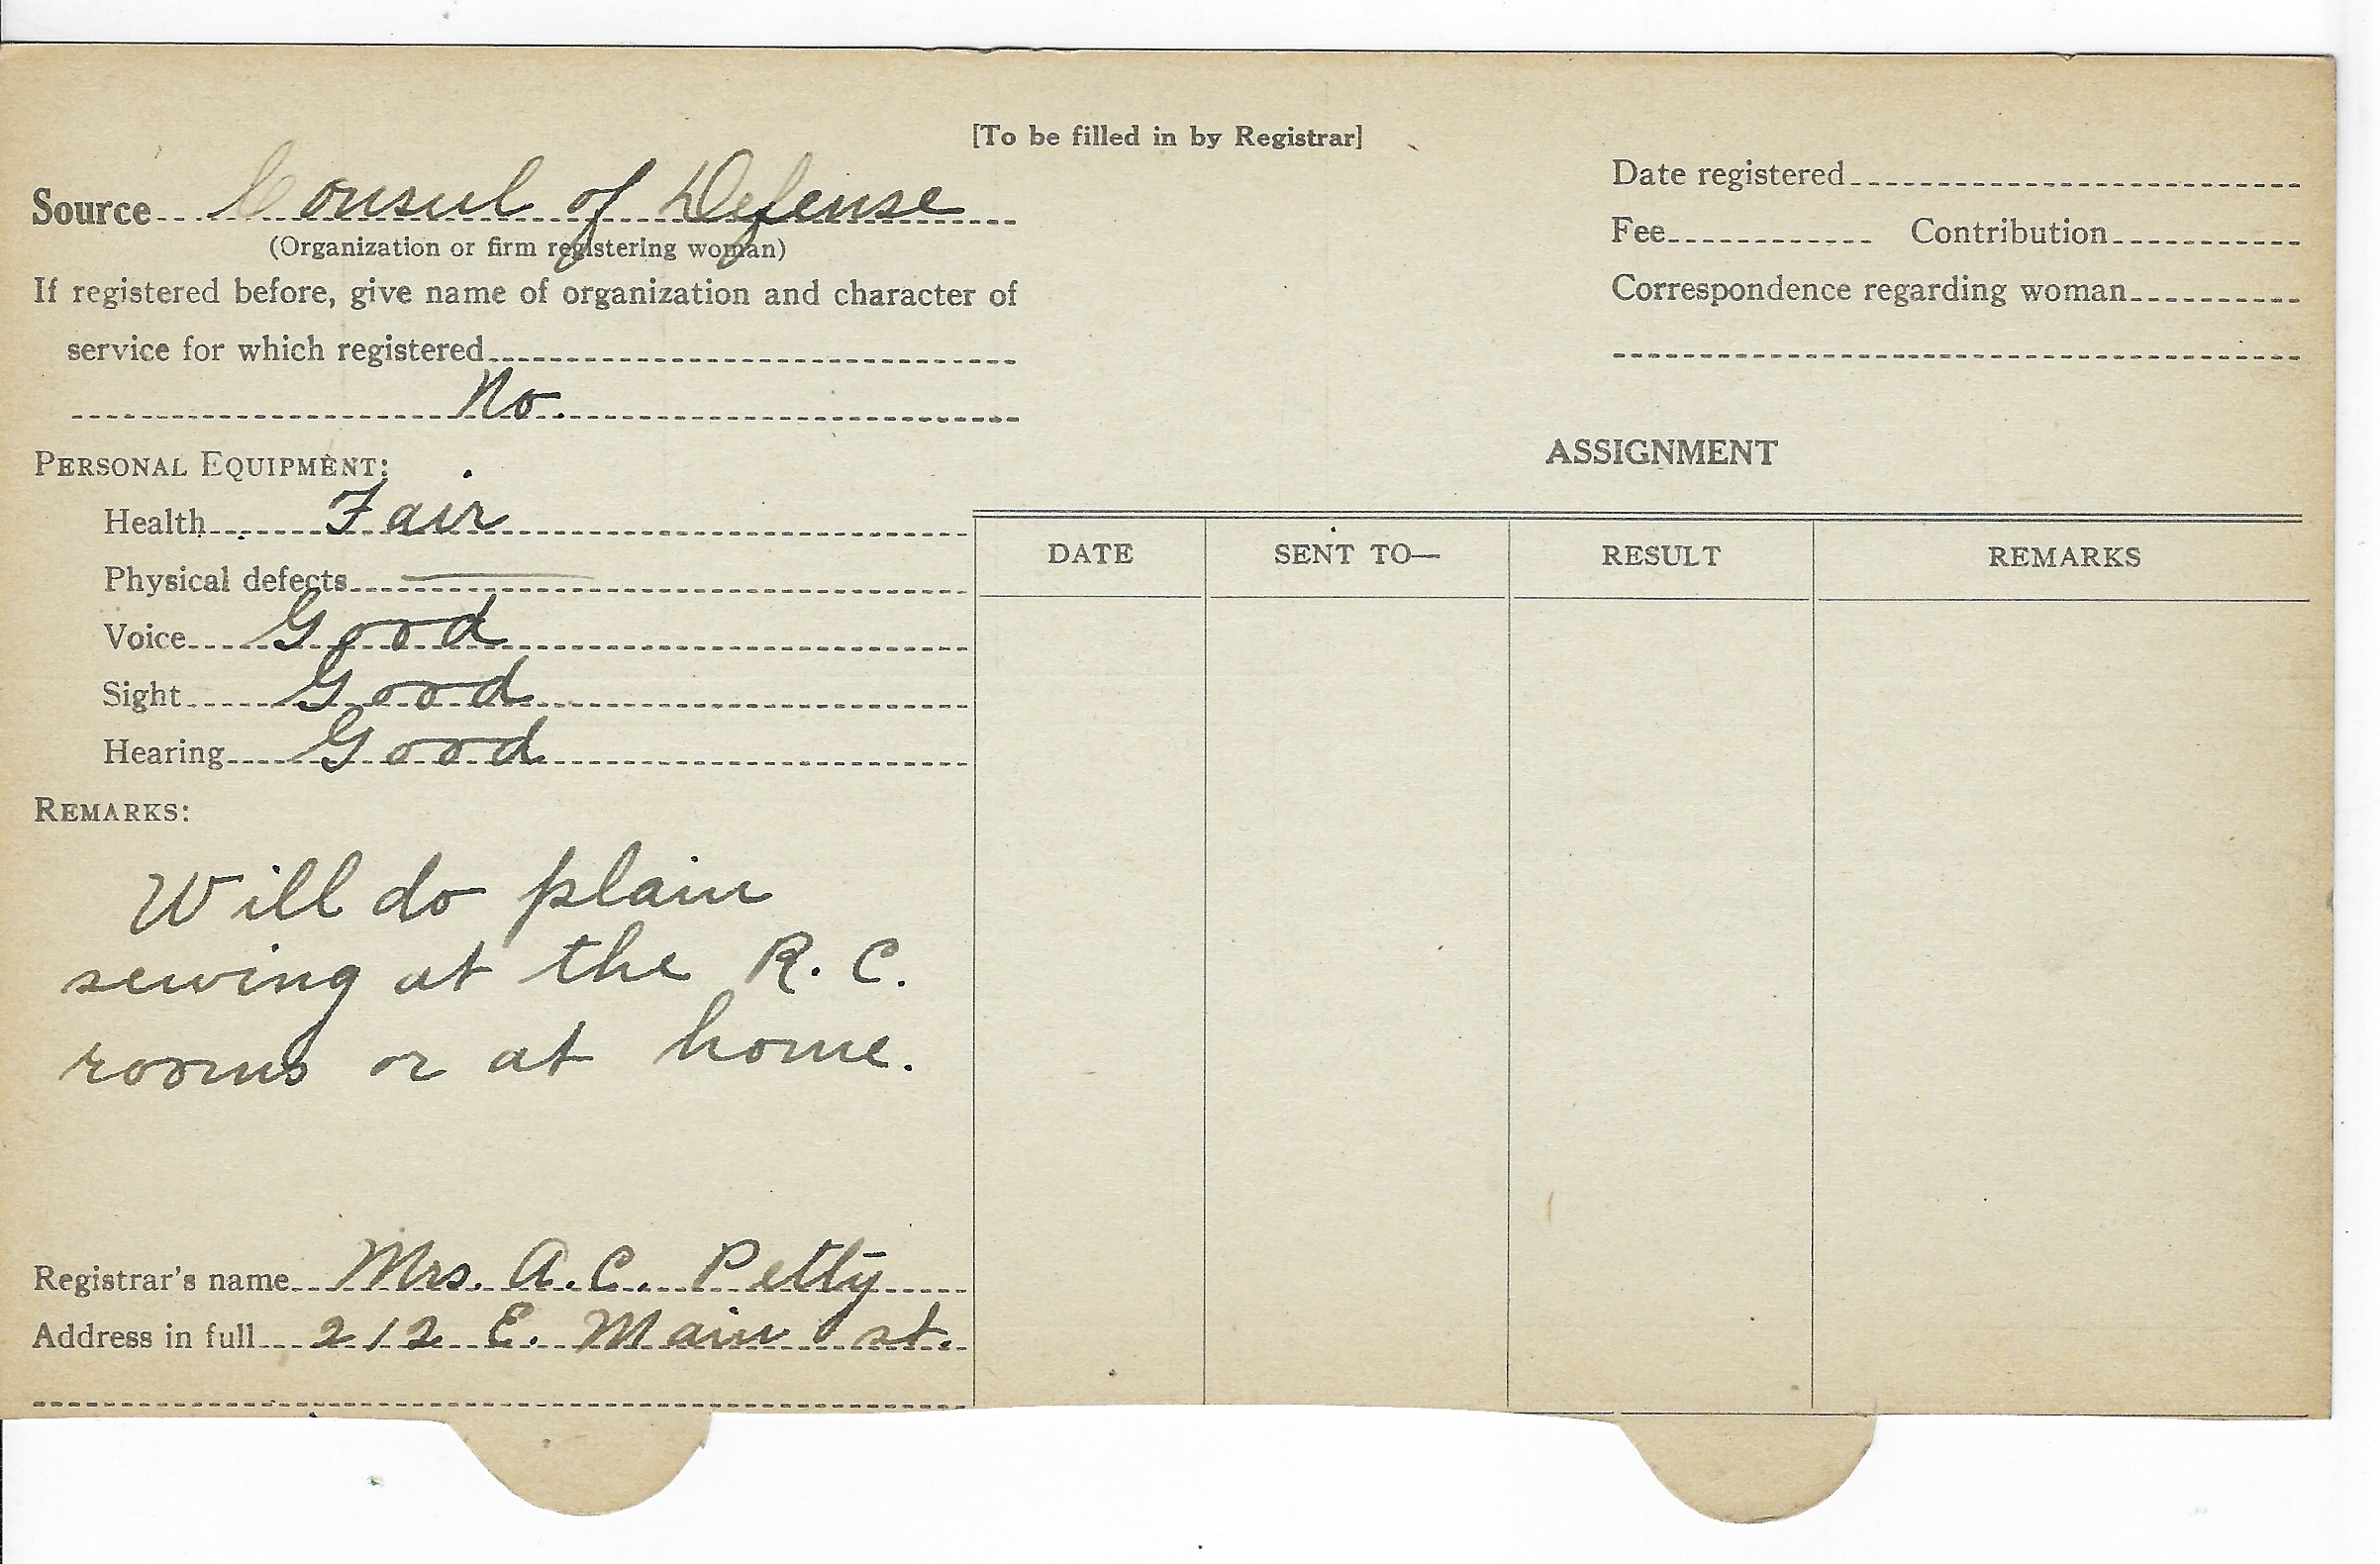 [To be filled in by Registrar]
Source Consul of Defense
(Organization or firm registering woman)
If registered before, give name of organization and character of
service for which registered
No.
PERSONAL EQUIPMENT:
Health Fair
Physical defects
Voice Good
Sight Good
Hearing Good
REMARKS:
Will do plain
sewing at the R. C.
rooms or at home.
Registrar's name Mrs. A. C. Petty
Address in full 212 E. Main st.
Date registered
Fee Contribution
Correspondence regarding woman
ASSIGNMENT
DATE SENT TO— RESULT REMARKS